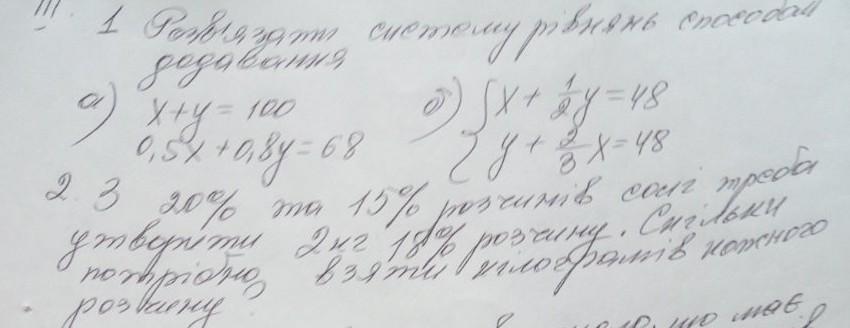 III. 1 Розв'язати систему рівнянь способом
додавання
а) x+y=100 б) { x + 1/2 y = 48
0,5x+0,8y=68 y + 2/3 x = 48
2. З 20% та 15% розчинів солі треба
утворити 2кг 18% розчину. Скільки
потрібно взяти кілограмів кожного
розчину?
що має